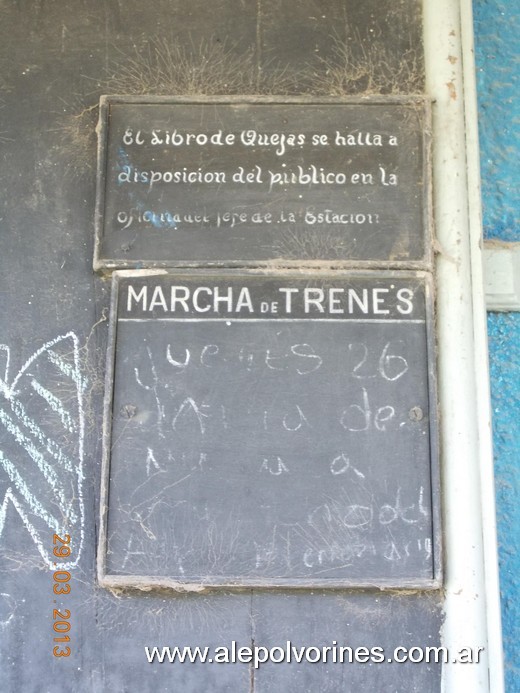 El Libro de Quejas se halla a
disposicion del público en la
oficina del Jefe de la Estacion
MARCHA DE TRENES
Jueves 26
de
a
29 03 2013
www.alepolvorines.com.ar